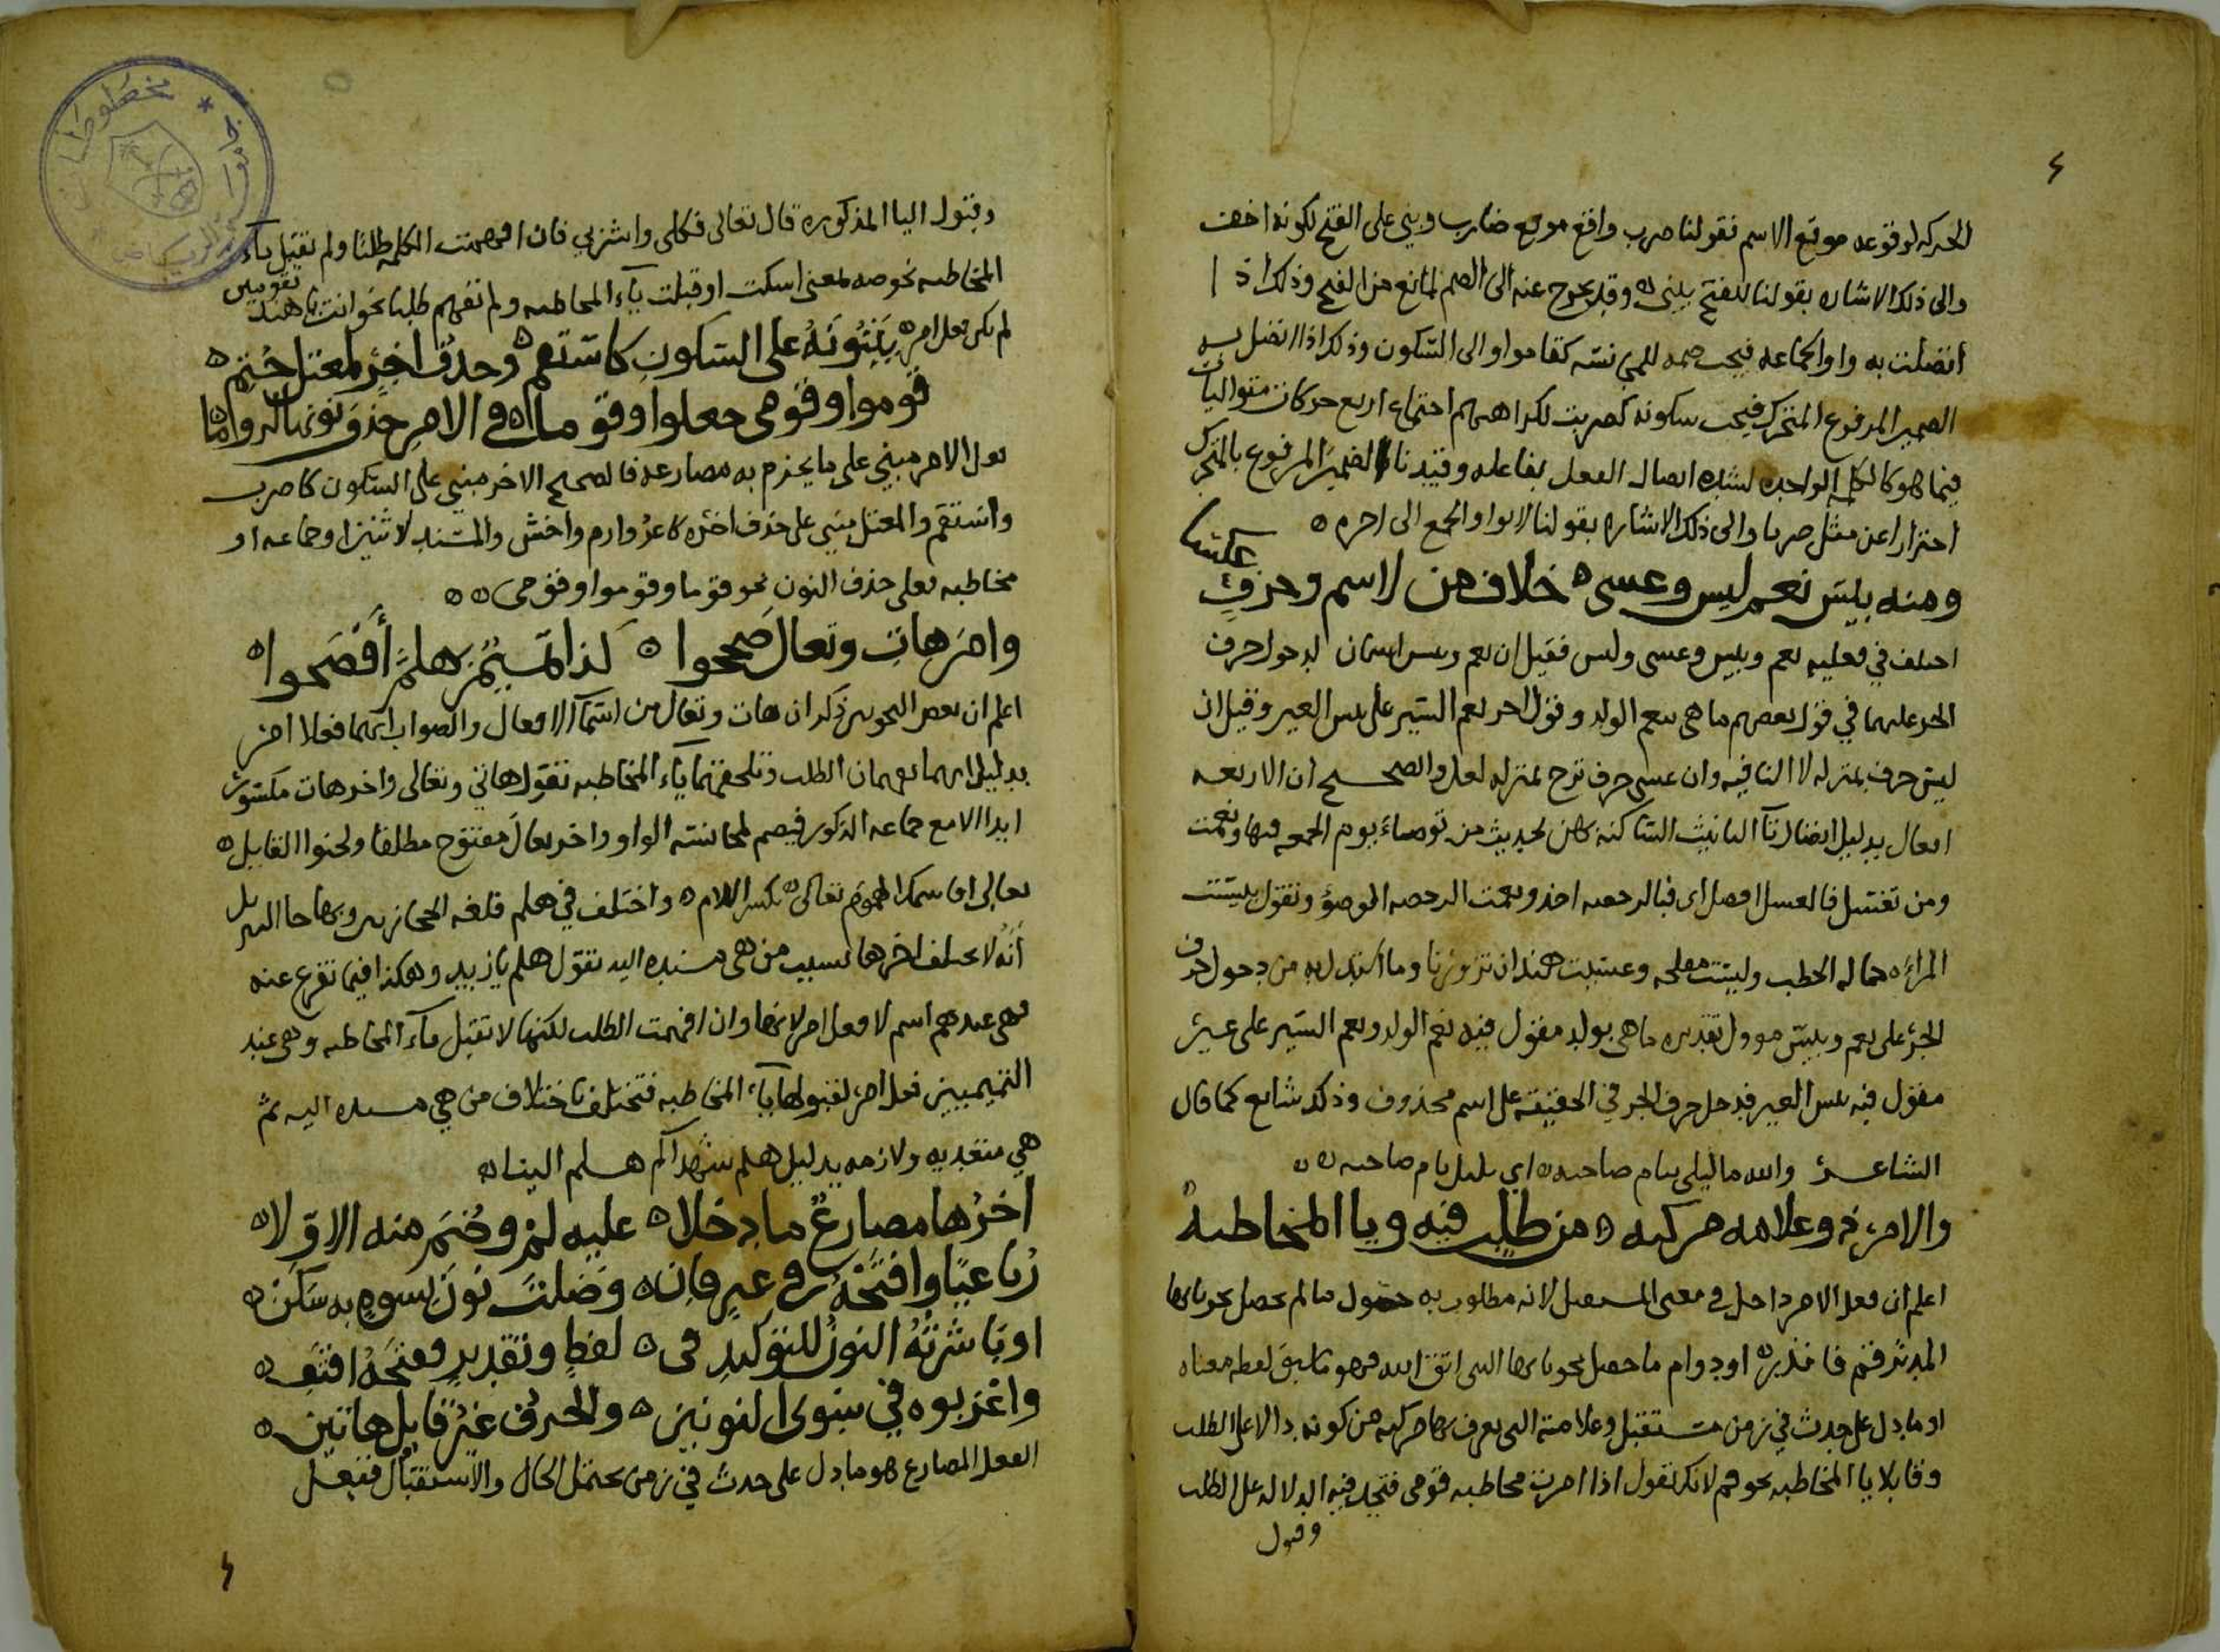 ٤
الحركه لوقوعه موقع الاسم فقولنا ضرب واقع موقع ضارب وبني على الفتح لكونه اخف
والى ذلك الاشاره بقولنا للفتح يبنى وقد يخرج عنه الى الضم لمانع من الفتح وذلك اذا
اتصلت به واو الجماعه فيجب ضمه للمجانسه كقاموا والى السكون وذلك اذا اتصل به
الضمير المرفوع المتحرك فيجب سكونه كضربت لكراهتهم اجتماع اربع حركات متواليات
فيما هو كالكلمه الواحده لشده اتصال الفعل بفاعله وقيدنا الضمير المرفوع بالمتحرك
احترازا عن مثل ضربا والى ذلك الاشاره بقولنا لا بواو الجمع الى اخره
ومنه بئس نعم ليس وعسى خلاف من لاسم وحرف
اختلف في فعليه نعم وبئس وعسى وليس فقيل ان نعم وبئس اسمان لدخول حرف
الجر عليهما في قول بعضهم ما هي بنعم الولد وقول اخر نعم السير على بئس العير وقيل ان
ليس حرف بمنزله لا النافيه وان عسى حرف ترج بمنزله لعل والصحيح ان الاربعه
افعال بدليل اتصال تآ التانيث الساكنه بهن لحديث من توضاء يوم الجمعه فبها ونعمت
ومن تغتسل فالغسل افضل اى فبالرخصه اخذ ونعمت الرخصه الوضوؤ وتقول بئست
المراه حماله الحطب وليست مفلحه وعست هند ان تزورنا وما استدل به من دخول حرف
الجر على نعم وبئس موول تقديره ما هي بولد مقول فيه نعم الولد ونعم السير على عير
مقول فيه بئس العير فدخل حرف الجر في الحقيقه على اسم محذوف وذلك شايع كما قال
الشاعر والله ما ليلي بنام صاحبه اي بليل نام صاحبه
والامر ذو علامه مركبه من طلب فيه ويا المخاطبه
اعلم ان فعل الامر داخل في معنى المستقبل لانه مطلوب به حصول ما لم يحصل نحو يايها
المدثر قم فانذر او دوام ما حصل نحو يايها النبي اتق الله فهو ما سبق لفظه معناه
او ما دل على حدث في زمن مستقبل وعلامته التي يعرف بها مركبه من كونه دالا على الطلب
وقابلا يا المخاطبه نحو قم لانك تقول اذا امرت مخاطبه قومي فتجد فيه الدلاله على الطلب
وقبول
وقبول اليا المذكوره قال تعالى فكلي واشربي فان افهمت الكلمه طلبا ولم تقبل ياء
المخاطبه نحو صه بمعنى اسكت او قبلت ياء المخاطبه ولم تفهم طلبا نحو انت يا هند تقومين
لم تكن فعل امر يبنونه على السكون كاستقم وحذف اخر لمعتل ختم
قوموا وقومي جعلوا وقوما في الامر حذف
فعل الامر مبني على ما يجزم به مضارعه فالصحيح الاخر مبني على السكون كاضرب
واستقم والمعتل مبني على حذف اخره كاغز وارم واخش والمسند لاثنين او جماعه او
مخاطبه فعلى حذف النون نحو قوما وقوموا وقومي
وامر هات وتعال صححوا كذا تميم هلم أفصحوا
اعلم ان بعض النحويين ذكر ان هات وتعال من اسمآ الافعال والصواب انهما فعلا امر
بدليل انهما يفهمان الطلب وتلحقهما ياء المخاطبه تقول هاتي وتعالي واخر هات مكسور
ابدا الا مع جماعه الذكور فيضم لمجانسه الواو واخر تعالَ مفتوح مطلقا ولحنوا القايل
تعالي اقاسمك الهموم تعالي بكسر اللام واختلف في هلم فلغه الحجازيين وبها جا التنزيل
أنه لا يختلف اخرها بسبب من هي مسنده اليه تقول هلم يا زيد وهكذا فيما تفرع عنه
فهي عندهم اسم لا فعل امر لانها وان افهمت الطلب لكنها لا تقبل ياء المخاطبه وهي عند
التميميين فعل امر لقبولها ياء المخاطبه فتختلف باختلاف من هي مسنده اليه ثم
هي متعديه ولازمه بدليل هلم شهداكم هلم الينا
اخرها مضارع ما دخلا عليه لم وضم منه الاولا
رباعيا وافتحه في غير فان وصلت نون نسوة به سكن
او باشرته النون للتوكيد في لفظ وتقدير ففتحه اقتف
واعربوه في سوى النونين والحرف غير قابل هاتين
الفعل المضارع هو ما دل على حدث في زمن يحتمل الحال والاستقبال ففعل
٤